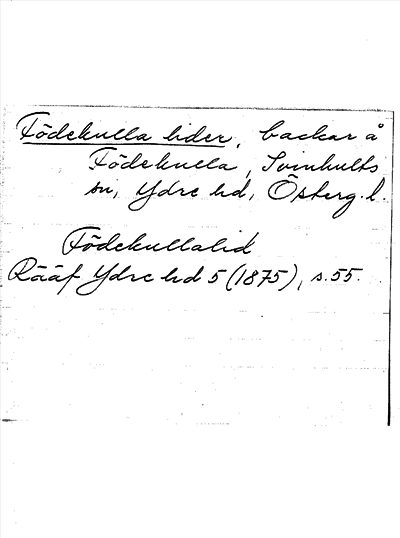 Födekulla lider, backar å
Födekulla, Svinhults
sn, Ydre hd, Österg. l.
Födekullalid
Rääf Ydre hd 5 (1875), s. 55.